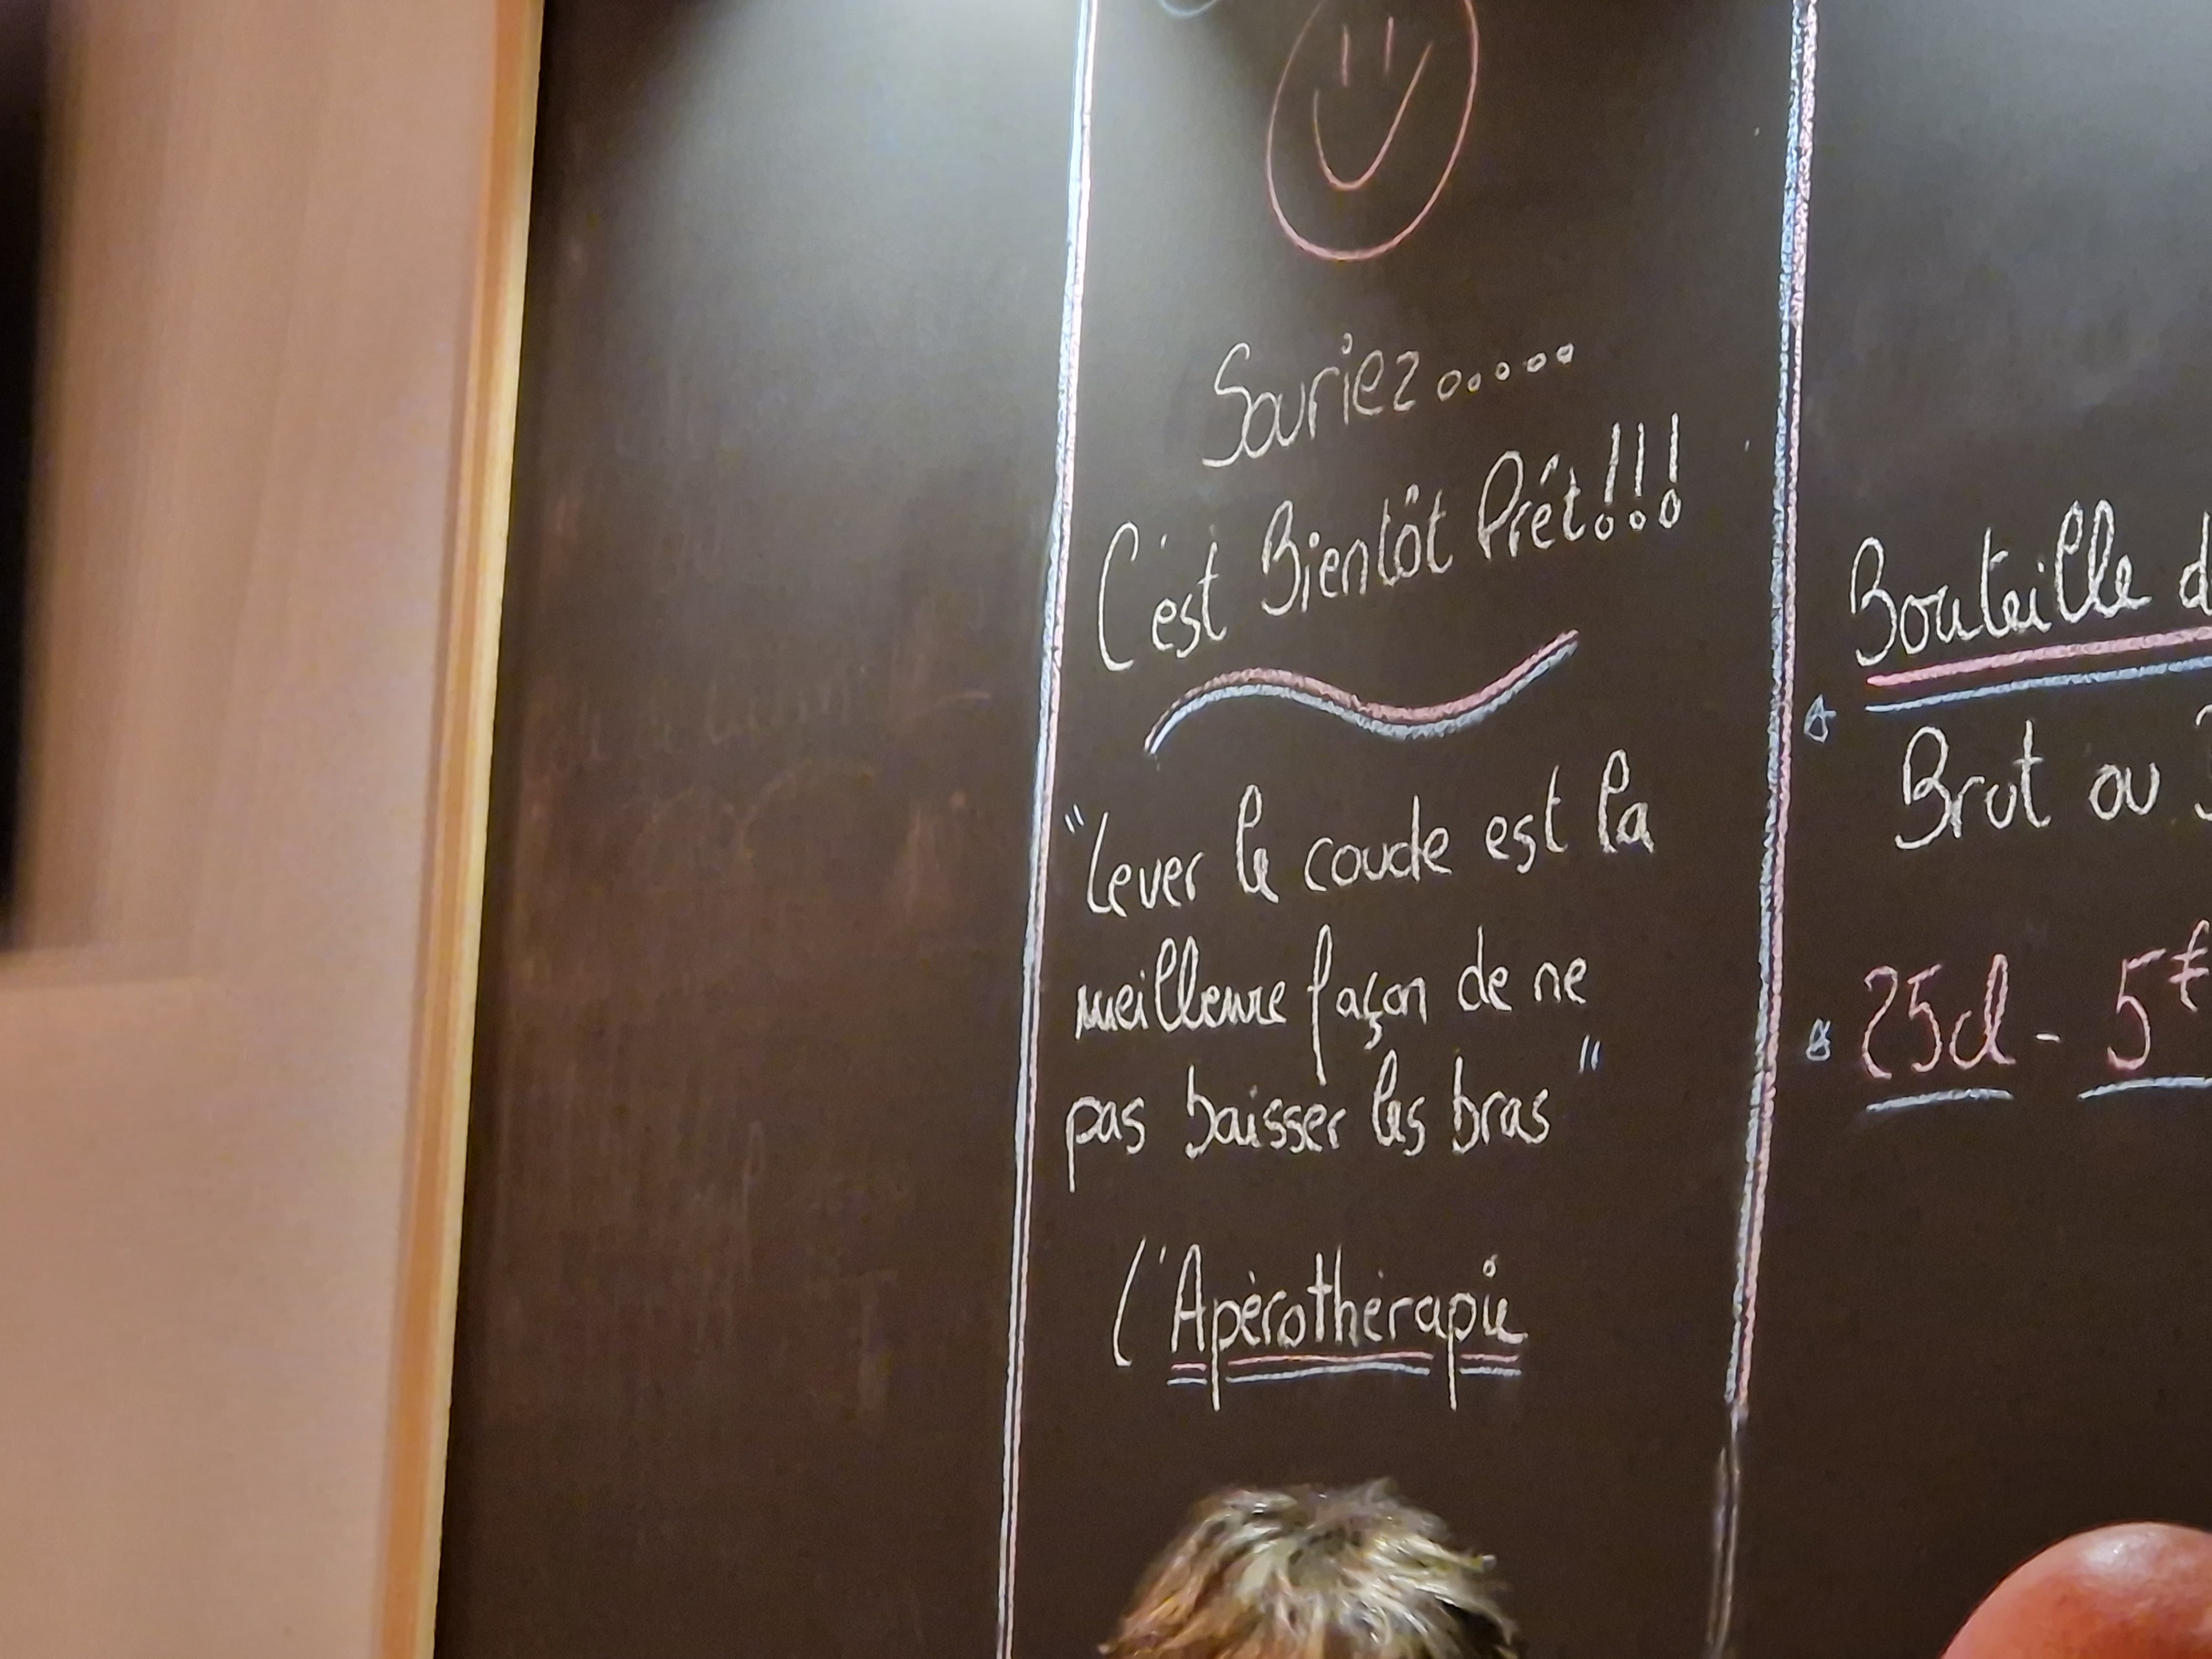 Souriez.....
C'est Bientôt Prêt!!!
"Lever le coude est la
meilleure façon de ne
pas baisser les bras"
L'Apérothérapie
Bouteille
Brut ou
25cl - 5€